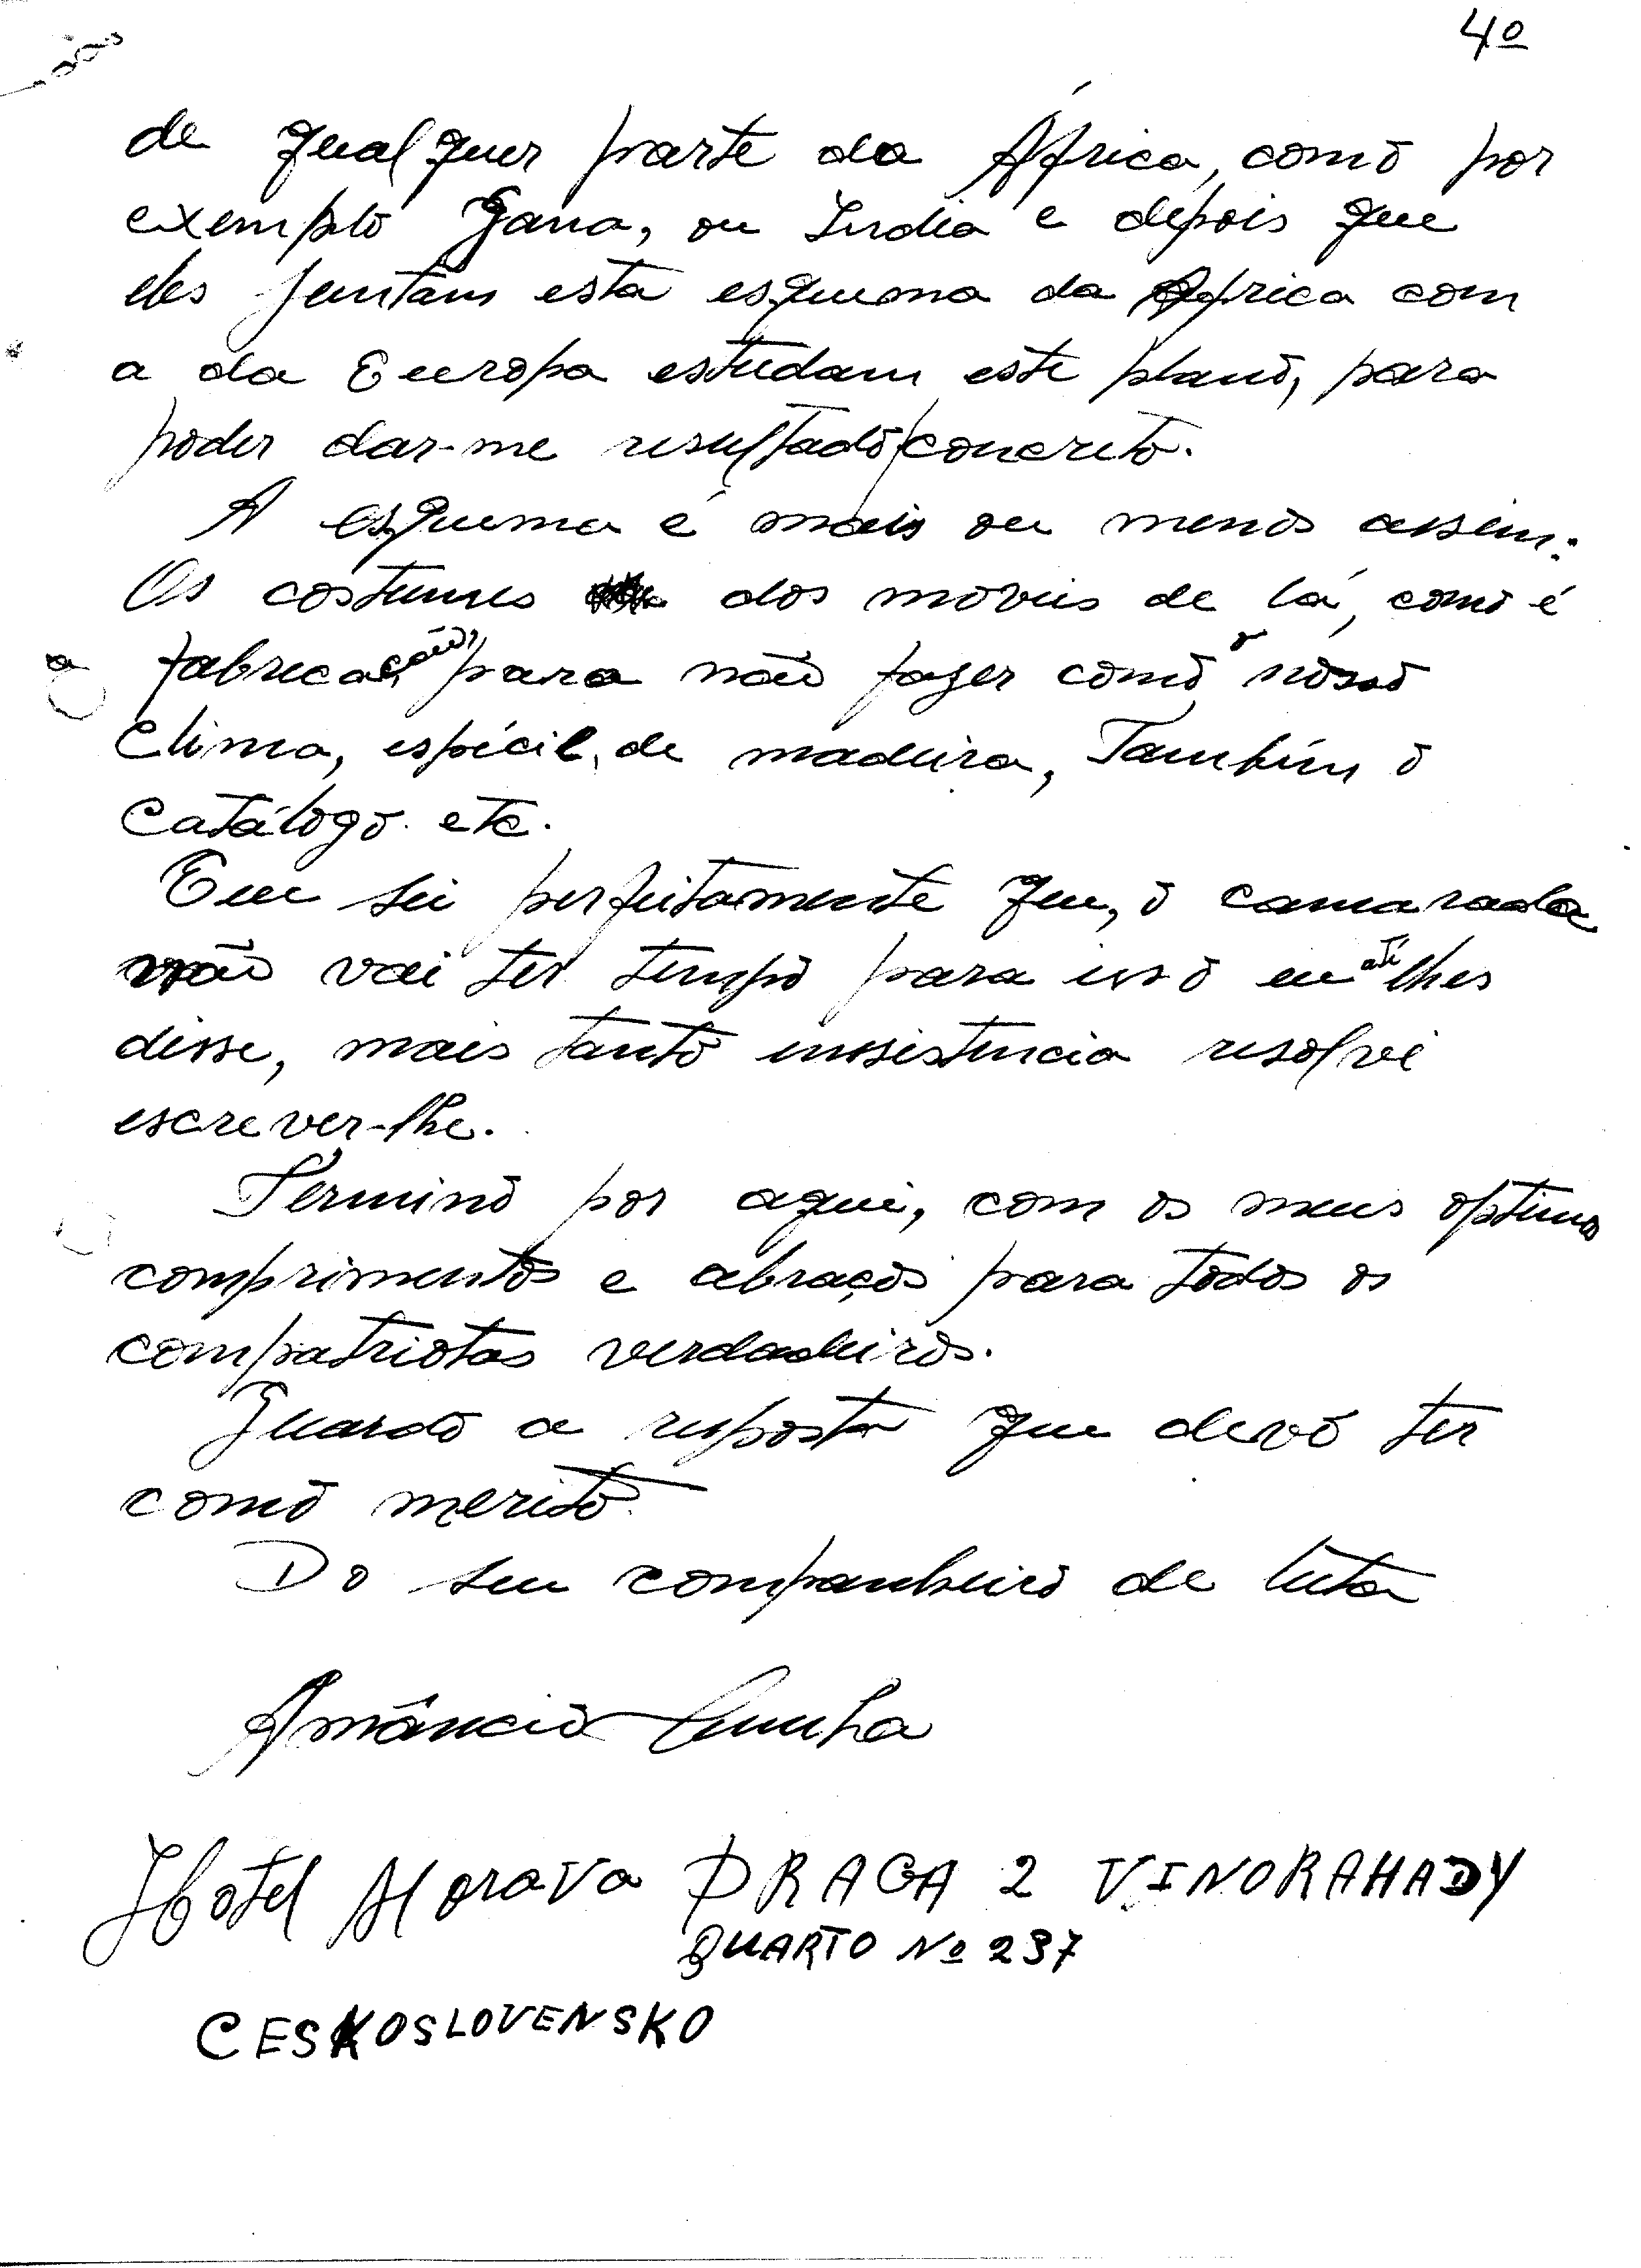 4º
de qualquer parte da África, como por
exemplo Gana, ou India e depois que
eles juntam esta esquema da Africa com
a da Europa estudam este plano, para
poder dar-me resultado concreto.
A esquema é mais ou menos assim:
Os costumes dos moveis de lá, como é
a fabricação, para não fazer como o nosso
clima, espécie, de madeira, Também o
catálogo. etc.
Eu sei perfeitamente que, o camarada
não vai ter tempo para isso eu até lhes
disse, mais tanto insistencia resolvi
escrever-lhe.
Termino por aqui, com os meus optimos
comprimentos e abraços para todos os
compatriotas verdadeiros.
Guardo a resposta que devo ter
como merito.
Do seu companheiro de luta
Amâncio Cunha
Hotel Morava PRAGA 2 VINORAHADY
QUARTO Nº 237
CESKOSLOVENSKO